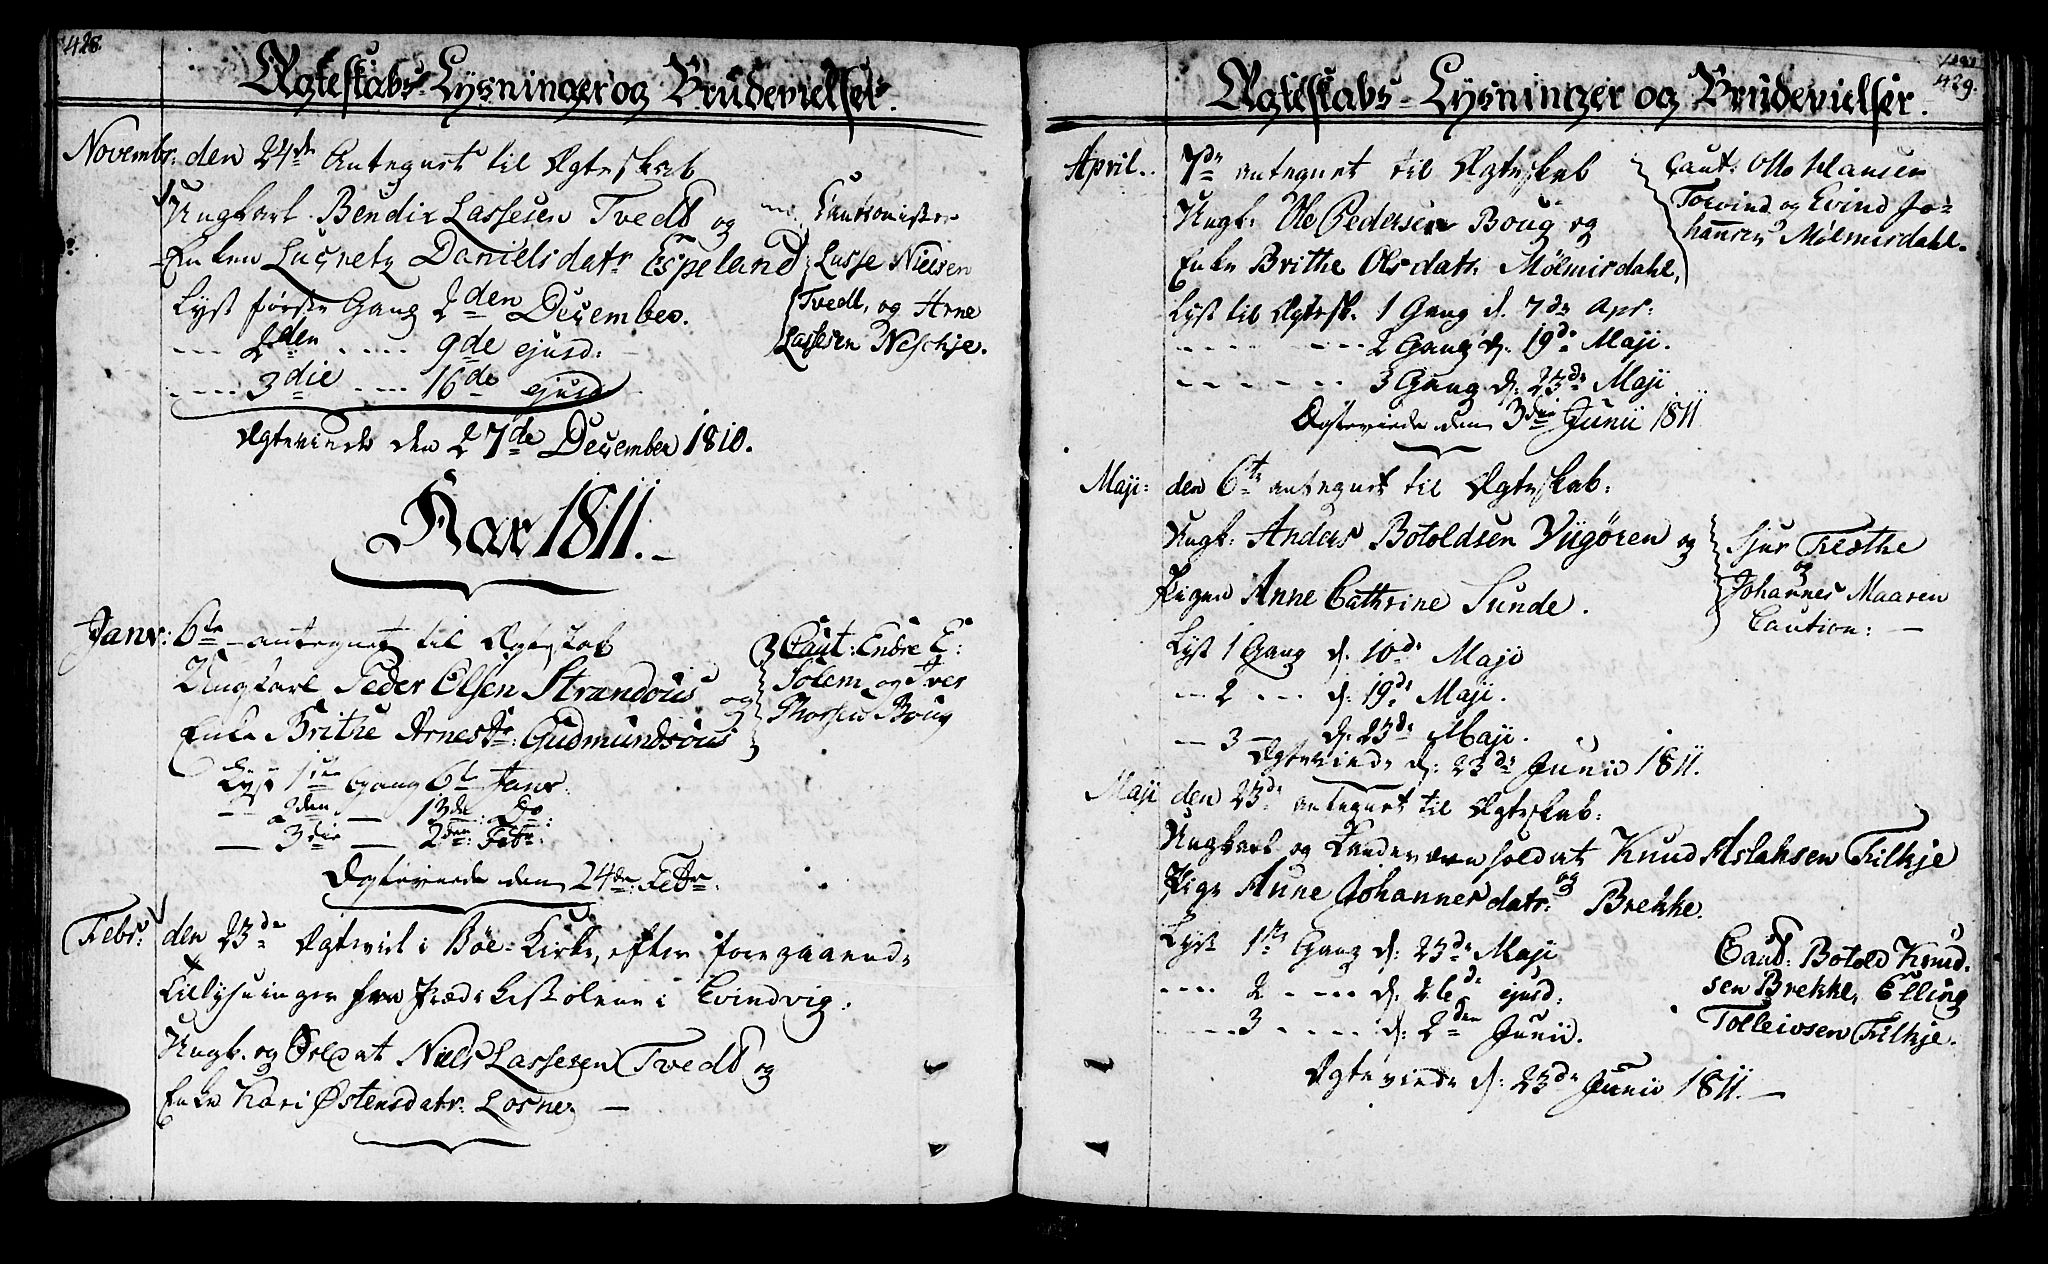 428.
Ægteskabs-Lysninger og Brudevielser.
Novembr: den 24de Antegnet til Ægteskab
Ungkarl Bendix Lassesen Tvedt og
Enken Lucretz Danielsdatr Espeland
Cautionister
Lasse Nielsen
Tvedt, og Arne
Lassesen Neschje.
Lyst første Gang 2den December.
--- 2den --- 9de ejusd:
--- 3die --- 16de ejusd
Ægteviede den 27de December 1810.
Aar 1811.
Janr: 6te antegnet til Ægteskab
Ungkarl Peder Olsen Strandous og
Enke Brithe Arnesdr: Gudmundsous
Caut: Endre E:
Solem og Iver
Thorsen Boug
Lyst 1ste Gang 6te Janr.
-- 2den — 13de: Do:
— 3die — 2den: Febr.
Ægteviede den 24de: Febr.
Febr: den 23de Ægteviet i Bøe-Kirke, efter foregaaende
Tillysninger fra Prædikestolene i Evindvig:
Ungk. og Soldat Niels Lassesen Tvedt og
Enke Kari Østensdatr. Losne. —
429.
Ægteskabs-Lysninger og Brudevielser.
April. 7de antegnet til Ægteskab
Ungk: Ole Pedersen Boug og
Enke Brithe Olsdatr. Mølmisdahl,
Caut: Otto Hansen
Torvind og Evind Jo-
hannsen Mølmisdahl.
Lyst til Ægtesk. 1 Gang d. 7de Apr:
--- 2 Gang d: 19de Maji.
--- 3 Gang d: 23de Maji
Ægteviede den 3die Junii 1811
Maji: den 6te antegnet til Ægteskab:
Ungk: Anders Botoldsen Viigøren og
Pigen Anne Cathrine Sunde.
Sjur Træthe
og
Johannes Maaren
Caution: —
Lyst 1 Gang d. 10de Maji
-- 2 --- d: 19de Maji.
— 3 — d: 23de Maji.
Ægteviede d: 23de Junii 1811.
Maji den 23de antegnet til Ægteskab:
Ungkarl og Landeværn soldat Knud Aslaksen Tilkje
og
Pige Anne Johannesdatr: Brekke.
Lyst 1ste Gang d: 23de Maji
---- 2 ---- d: 26de ejusd:
---- 3 ---- d: 2den Junii.
Caut: Botold Knud-
sen Brekke, Elling
Tolleivsen Tilkje.
Ægteviede d: 23de Junii 1811. —